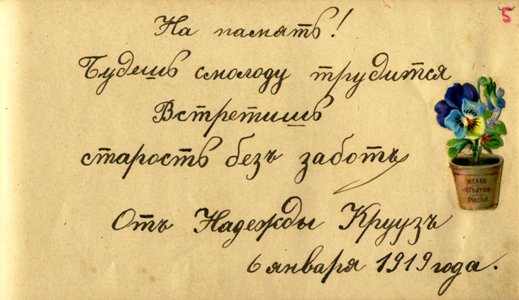 На память!
5
Будешь смолоду трудится
Встретишь
старость безъ заботъ
Отъ Надежды Круузъ
6 января 1919 года.
ЖЕЛАЮ
СЧАСТЬЯ